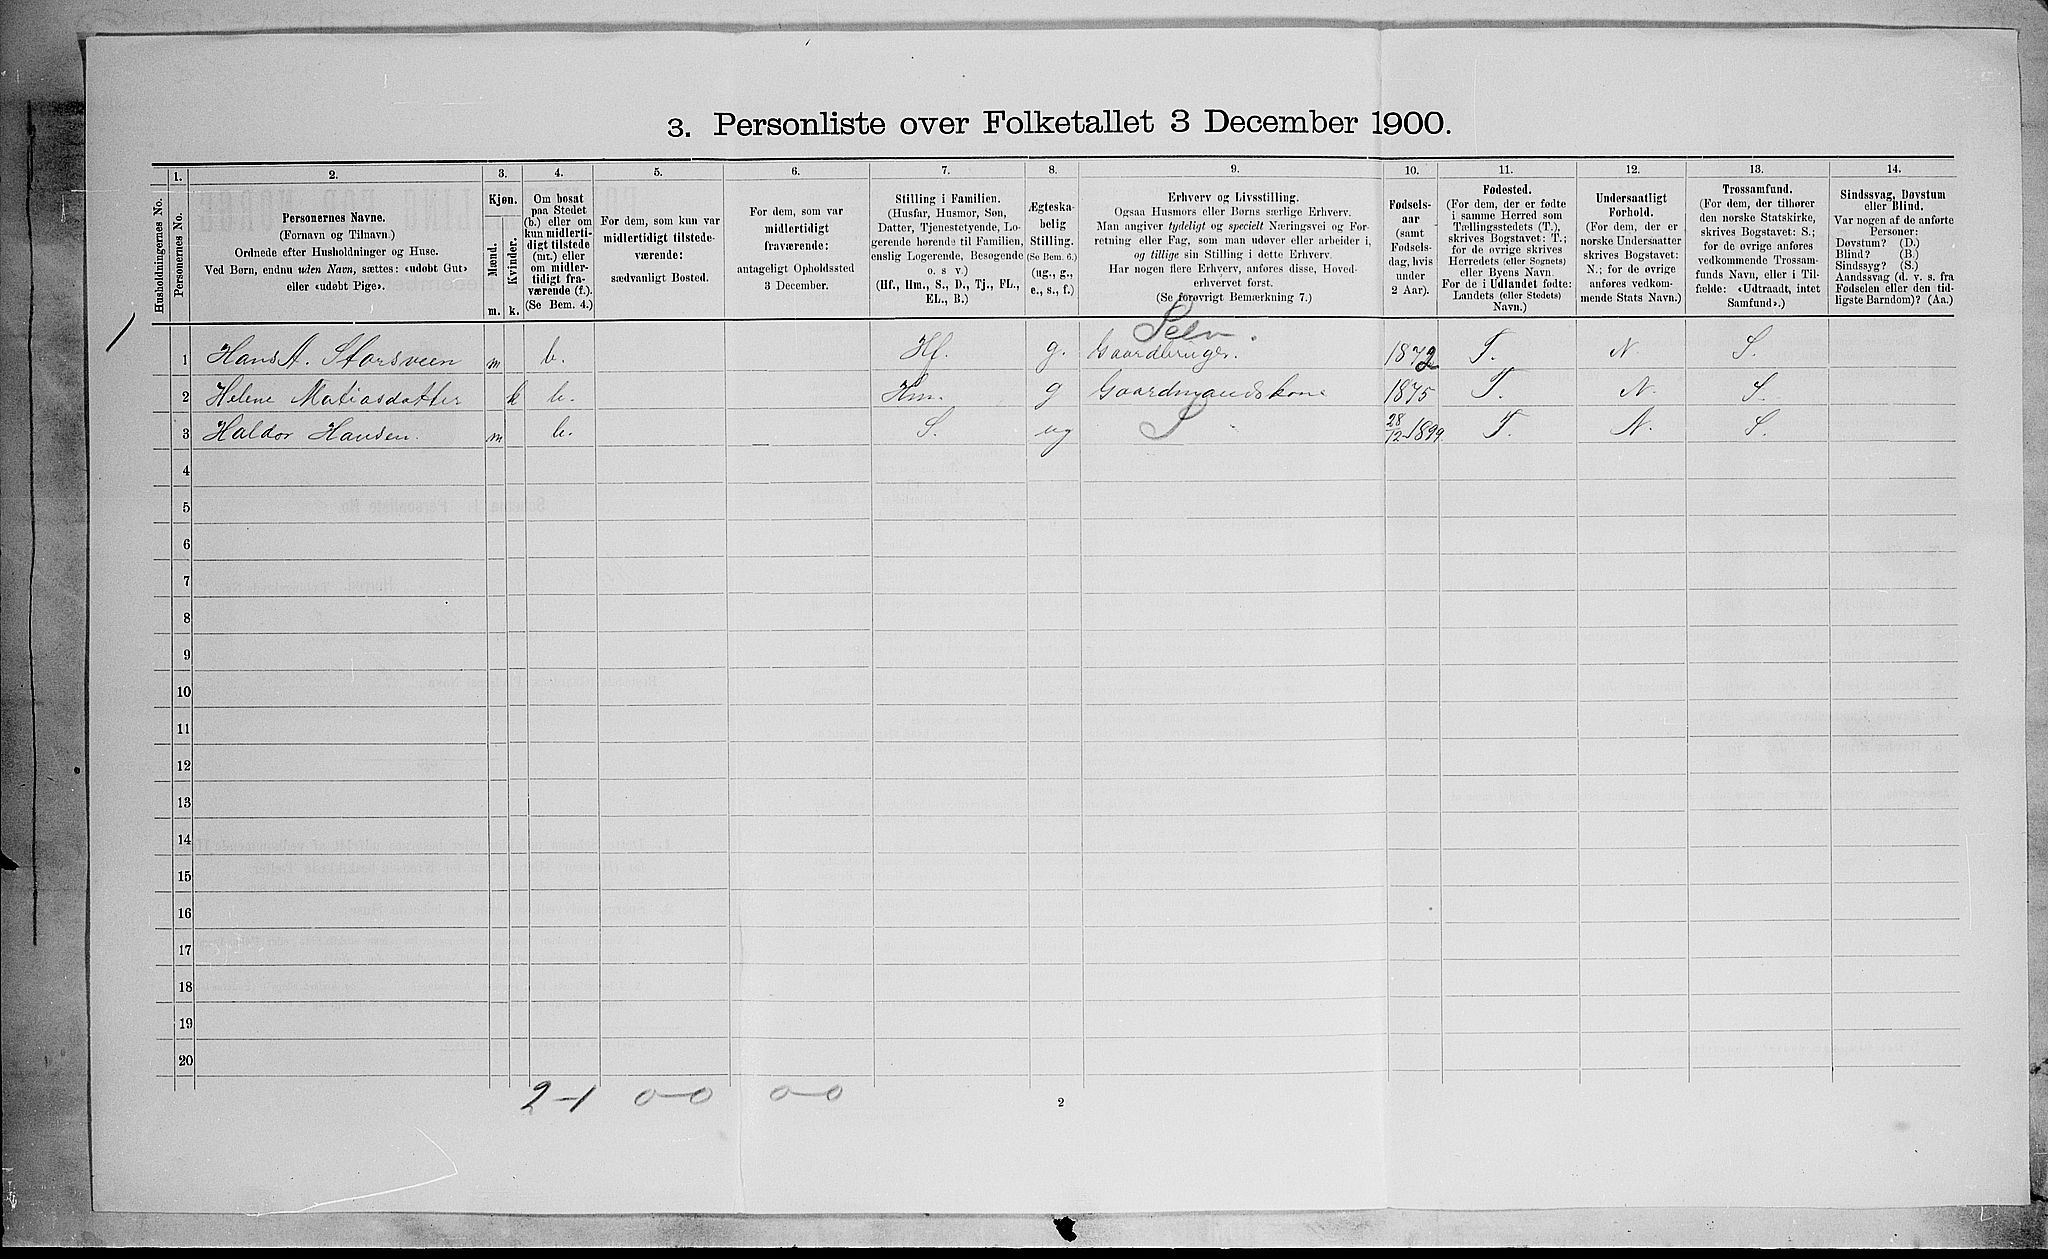 3. Personliste over Folketallet 3 December 1900.
1. 2. 3. 4. 5. 6. 7. 8. 9. 10. 11. 12. 13. 14.
Husholdningernes No.
Personernes No.
Personernes Navne.
(Fornavn og Tilnavn.)
Ordnede efter Husholdninger og Huse.
Ved Børn, endnu uden Navn, sættes: «udøbt Gut»
eller «udøbt Pige».
Kjøn.
Mænd.
Kvinder.
m. k.
Om bosat
paa Stedet
(b.) eller om
kun midlerti-
digt tilstede
(mt.) eller
om midler-
tidigt fra-
værende (f.).
(Se Bem. 4.)
For dem, som kun var
midlertidigt tilstede-
værende:
sædvanligt Bosted.
For dem, som var
midlertidigt
fraværende:
antageligt Opholdssted
3 December.
Stilling i Familien.
(Husfar, Husmor, Søn,
Datter, Tjenestetyende, Lo-
gerende hørende til Familien,
enslig Logerende, Besøgende
o. s v.)
(Hf., Hm., S., D., Tj., FL.,
EL., B.)
Ægteska-
belig
Stilling.
(Se Bem. 6.)
(ug., g.,
e., s., f.)
Erhverv og Livsstilling.
Ogsaa Husmors eller Børns særlige Erhverv.
Man angiver tydeligt og specielt Næringsvei og For-
retning eller Fag, som man udøver eller arbeider i,
og tillige sin Stilling i dette Erhverv.
Har nogen flere Erhverv, anføres disse, Hoved-
erhvervet først.
(Se forøvrigt Bemærkning 7.)
Fødsels-
aar
(samt
Fødsels-
dag, hvis
under
2 Aar).
Fødested.
(For dem, der er fødte
i samme Herred som
Tællingsstedets (T.),
skrives Bogstavet: T.;
for de øvrige skrives
Herredets (eller Sognets)
eller Byens Navn.
For de i Udlandet fødte:
Landets (eller Stedets)
Navn.)
Undersaatligt
Forhold.
(For dem, der er
norske Undersaatter
skrives Bogstavet:
N.; for de øvrige
anføres vedkom-
mende Stats Navn.)
Trossamfund.
(For dem, der tilhører
den norske Statskirke,
skrives Bogstavet: S.;
for de øvrige anføres
vedkommende Trossam-
funds Navn, eller i Til-
fælde: «Udtraadt, intet
Samfund».)
Sindssvag, Døvstum
eller Blind.
Var nogen af de anførte
Personer:
Døvstum? (D.)
Blind? (B.)
Sindssyg? (S.)
Aandssvag (d. v. s. fra
Fødselen eller den tid-
ligste Barndom)? (Aa.)
Selv.
1 Hans A. Storsveen m b. Hf. g. Gaardbruger. 1872 T. N S.
2 Helene Matiasdatter k b. Hm. g Gaardmandskone 1875 T. N. S.
3 Haldor Hansen. m b. S. ug S 28/12 1899. T. N. S.
4
5
6
7
8
9
10
11
12
13
14
15
16
17
18
19
20
2-1 0-0 0-0
2